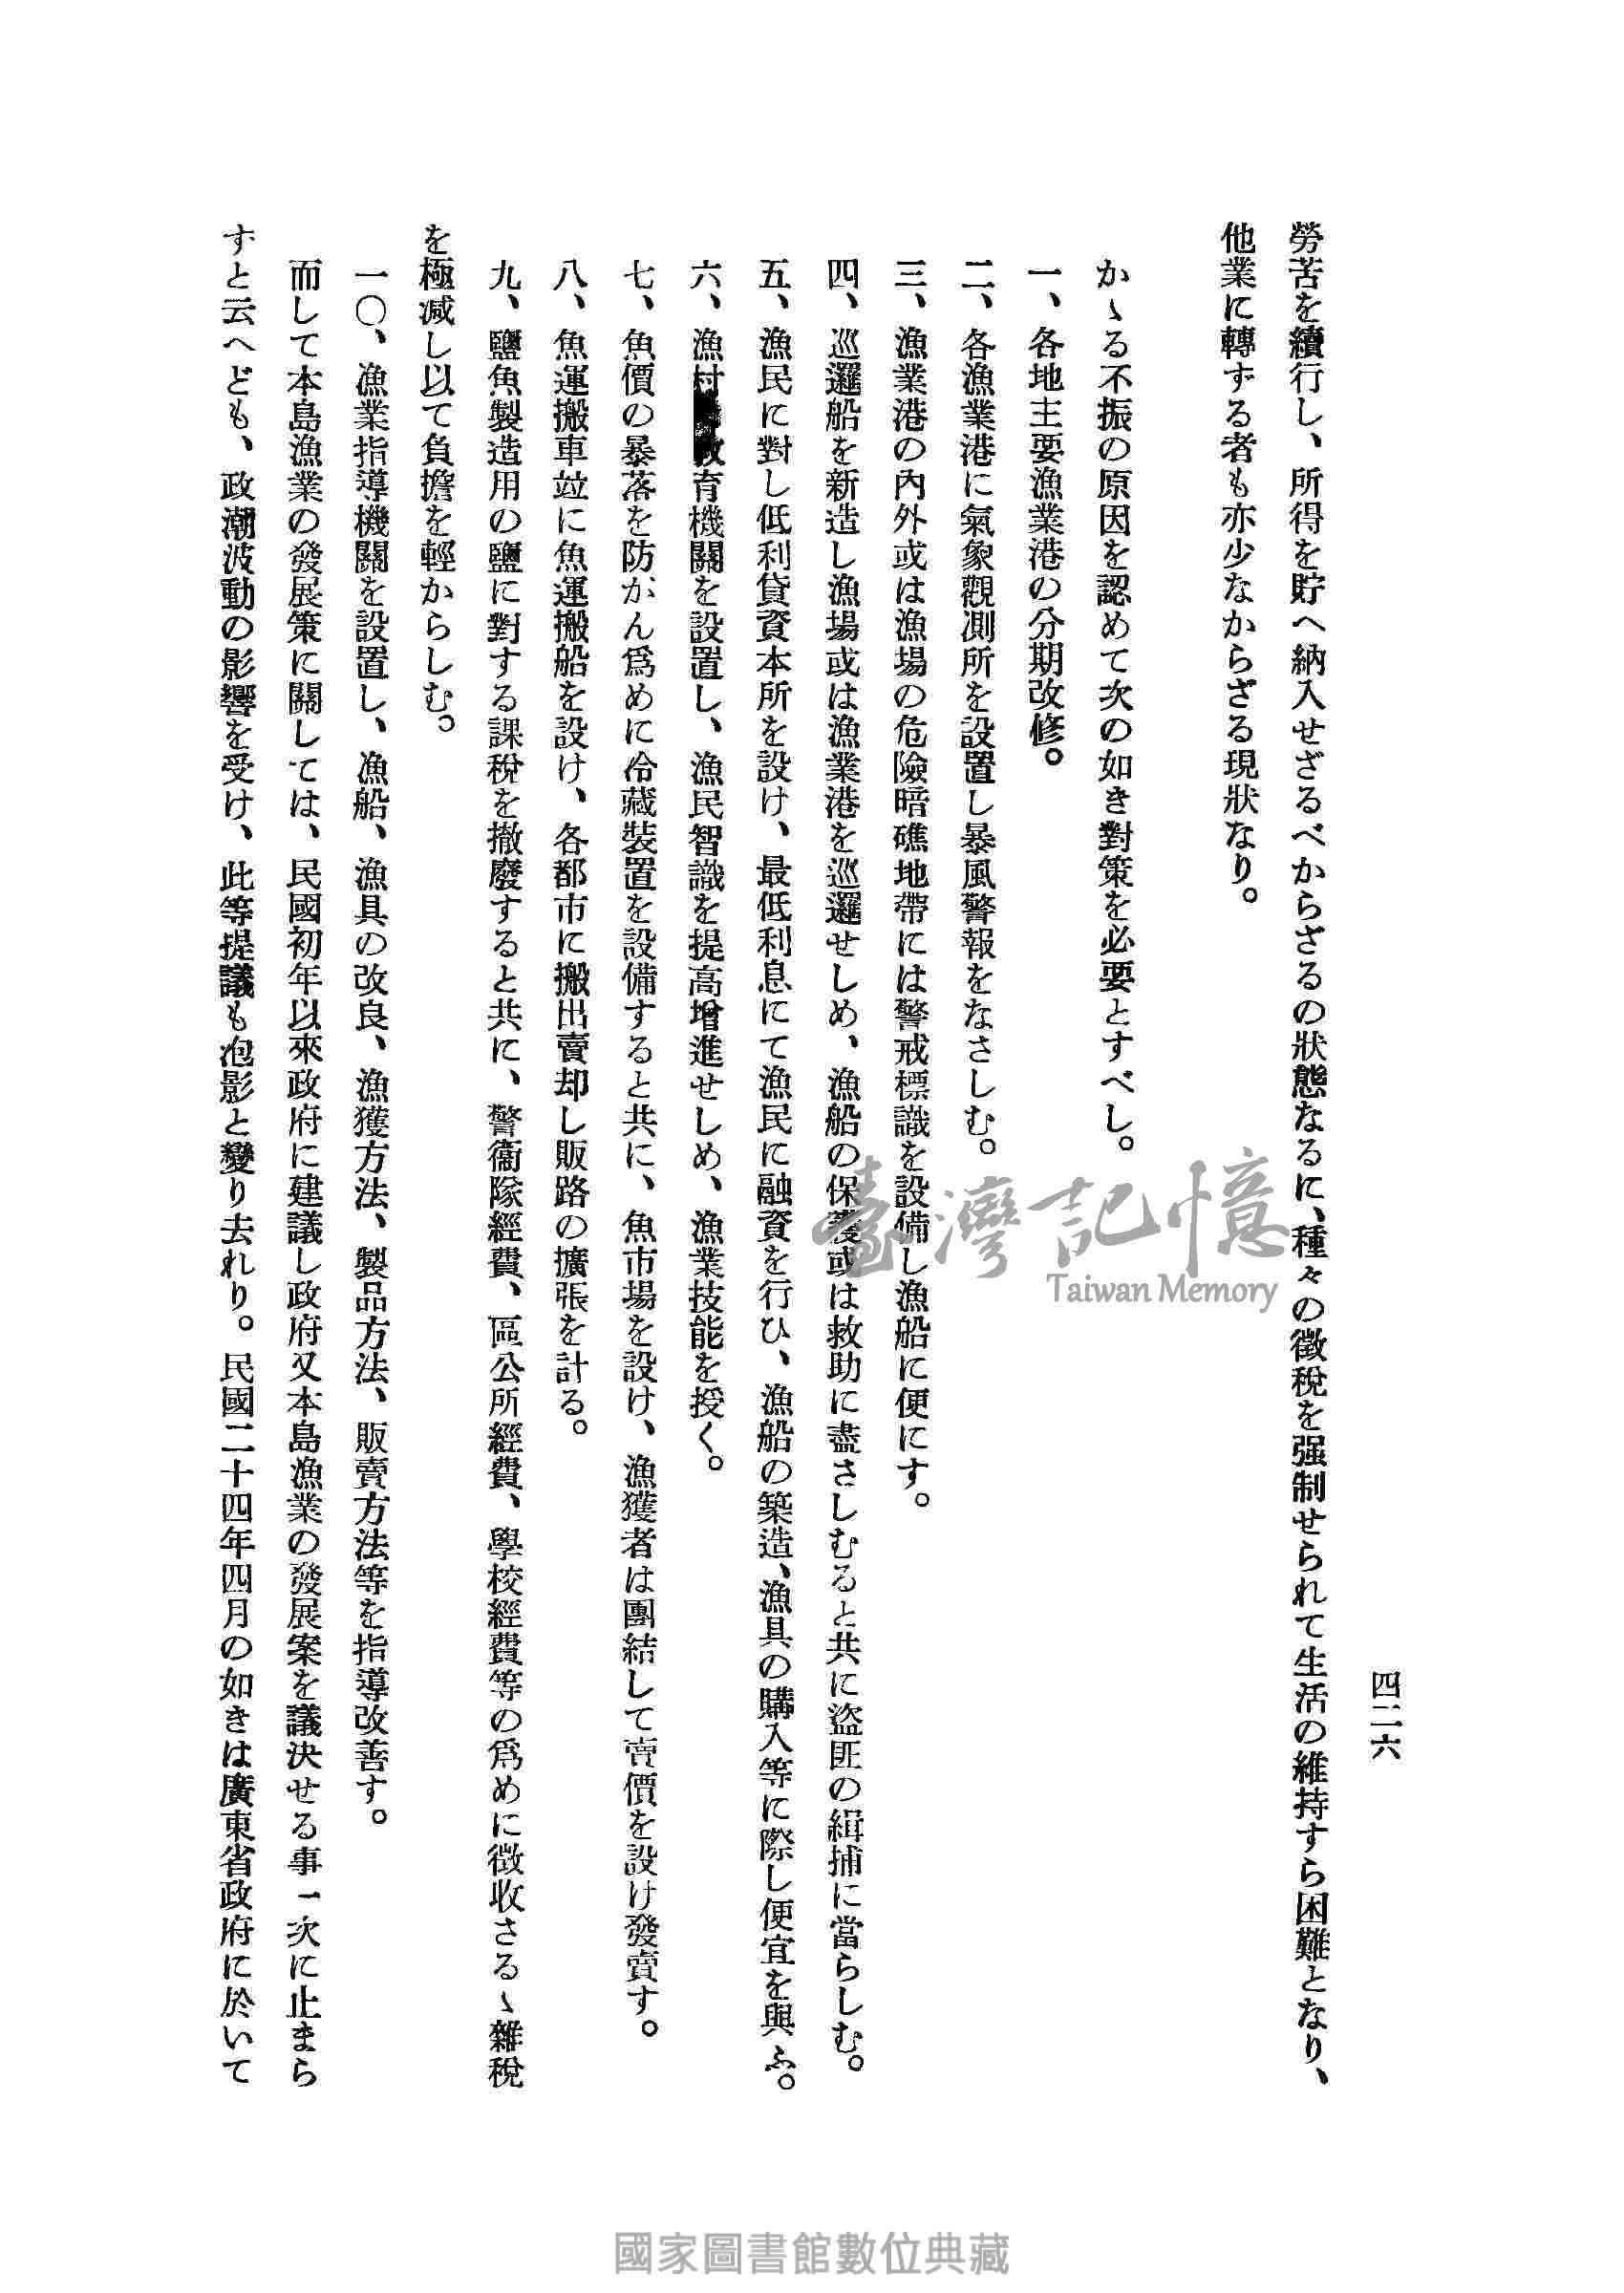 四二六
勞苦を續行し、所得を貯へ納入せざるべからざるの狀態なるに、種々の徵稅を强制せられて生活の維持すら困難となり、
他業に轉ずる者も亦少なからざる現狀なり。
かゝる不振の原因を認めて次の如き對策を必要とすべし。
一、各地主要漁業港の分期改修。
二、各漁業港に氣象觀測所を設置し暴風警報をなさしむ。
三、漁業港の內外或は漁場の危險暗礁地帶には警戒標識を設備し漁船に便にす。
四、巡邏船を新造し漁場或は漁業港を巡邏せしめ、漁船の保護或は救助に盡さしむると共に盜匪の緝捕に當らしむ。
五、漁民に對し低利貸資本所を設け、最低利息にて漁民に融資を行ひ、漁船の築造、漁具の購入等に際し便宜を與ふ。
六、漁村教育機關を設置し、漁民智識を提高增進せしめ、漁業技能を授く。
七、魚價の暴落を防がん爲めに冷藏裝置を設備すると共に、魚市場を設け、漁獲者は團結して賣價を設け發賣す。
八、魚運搬車竝に魚運搬船を設け、各都市に搬出賣却し販路の擴張を計る。
九、鹽魚製造用の鹽に對する課稅を撤廢すると共に、警衞隊經費、區公所經費、學校經費等の爲めに徵收さるゝ雜稅
を極減し以て負擔を輕からしむ。
一〇、漁業指導機關を設置し、漁船、漁具の改良、漁獲方法、製品方法、販賣方法等を指導改善す。
而して本島漁業の發展策に關しては、民國初年以來政府に建議し政府又本島漁業の發展案を議決せる事一次に止まら
ずと云へども、政潮波動の影響を受け、此等提議も泡影と變り去れり。民國二十四年四月の如きは廣東省政府に於いて
臺灣記憶
Taiwan Memory
國家圖書館數位典藏